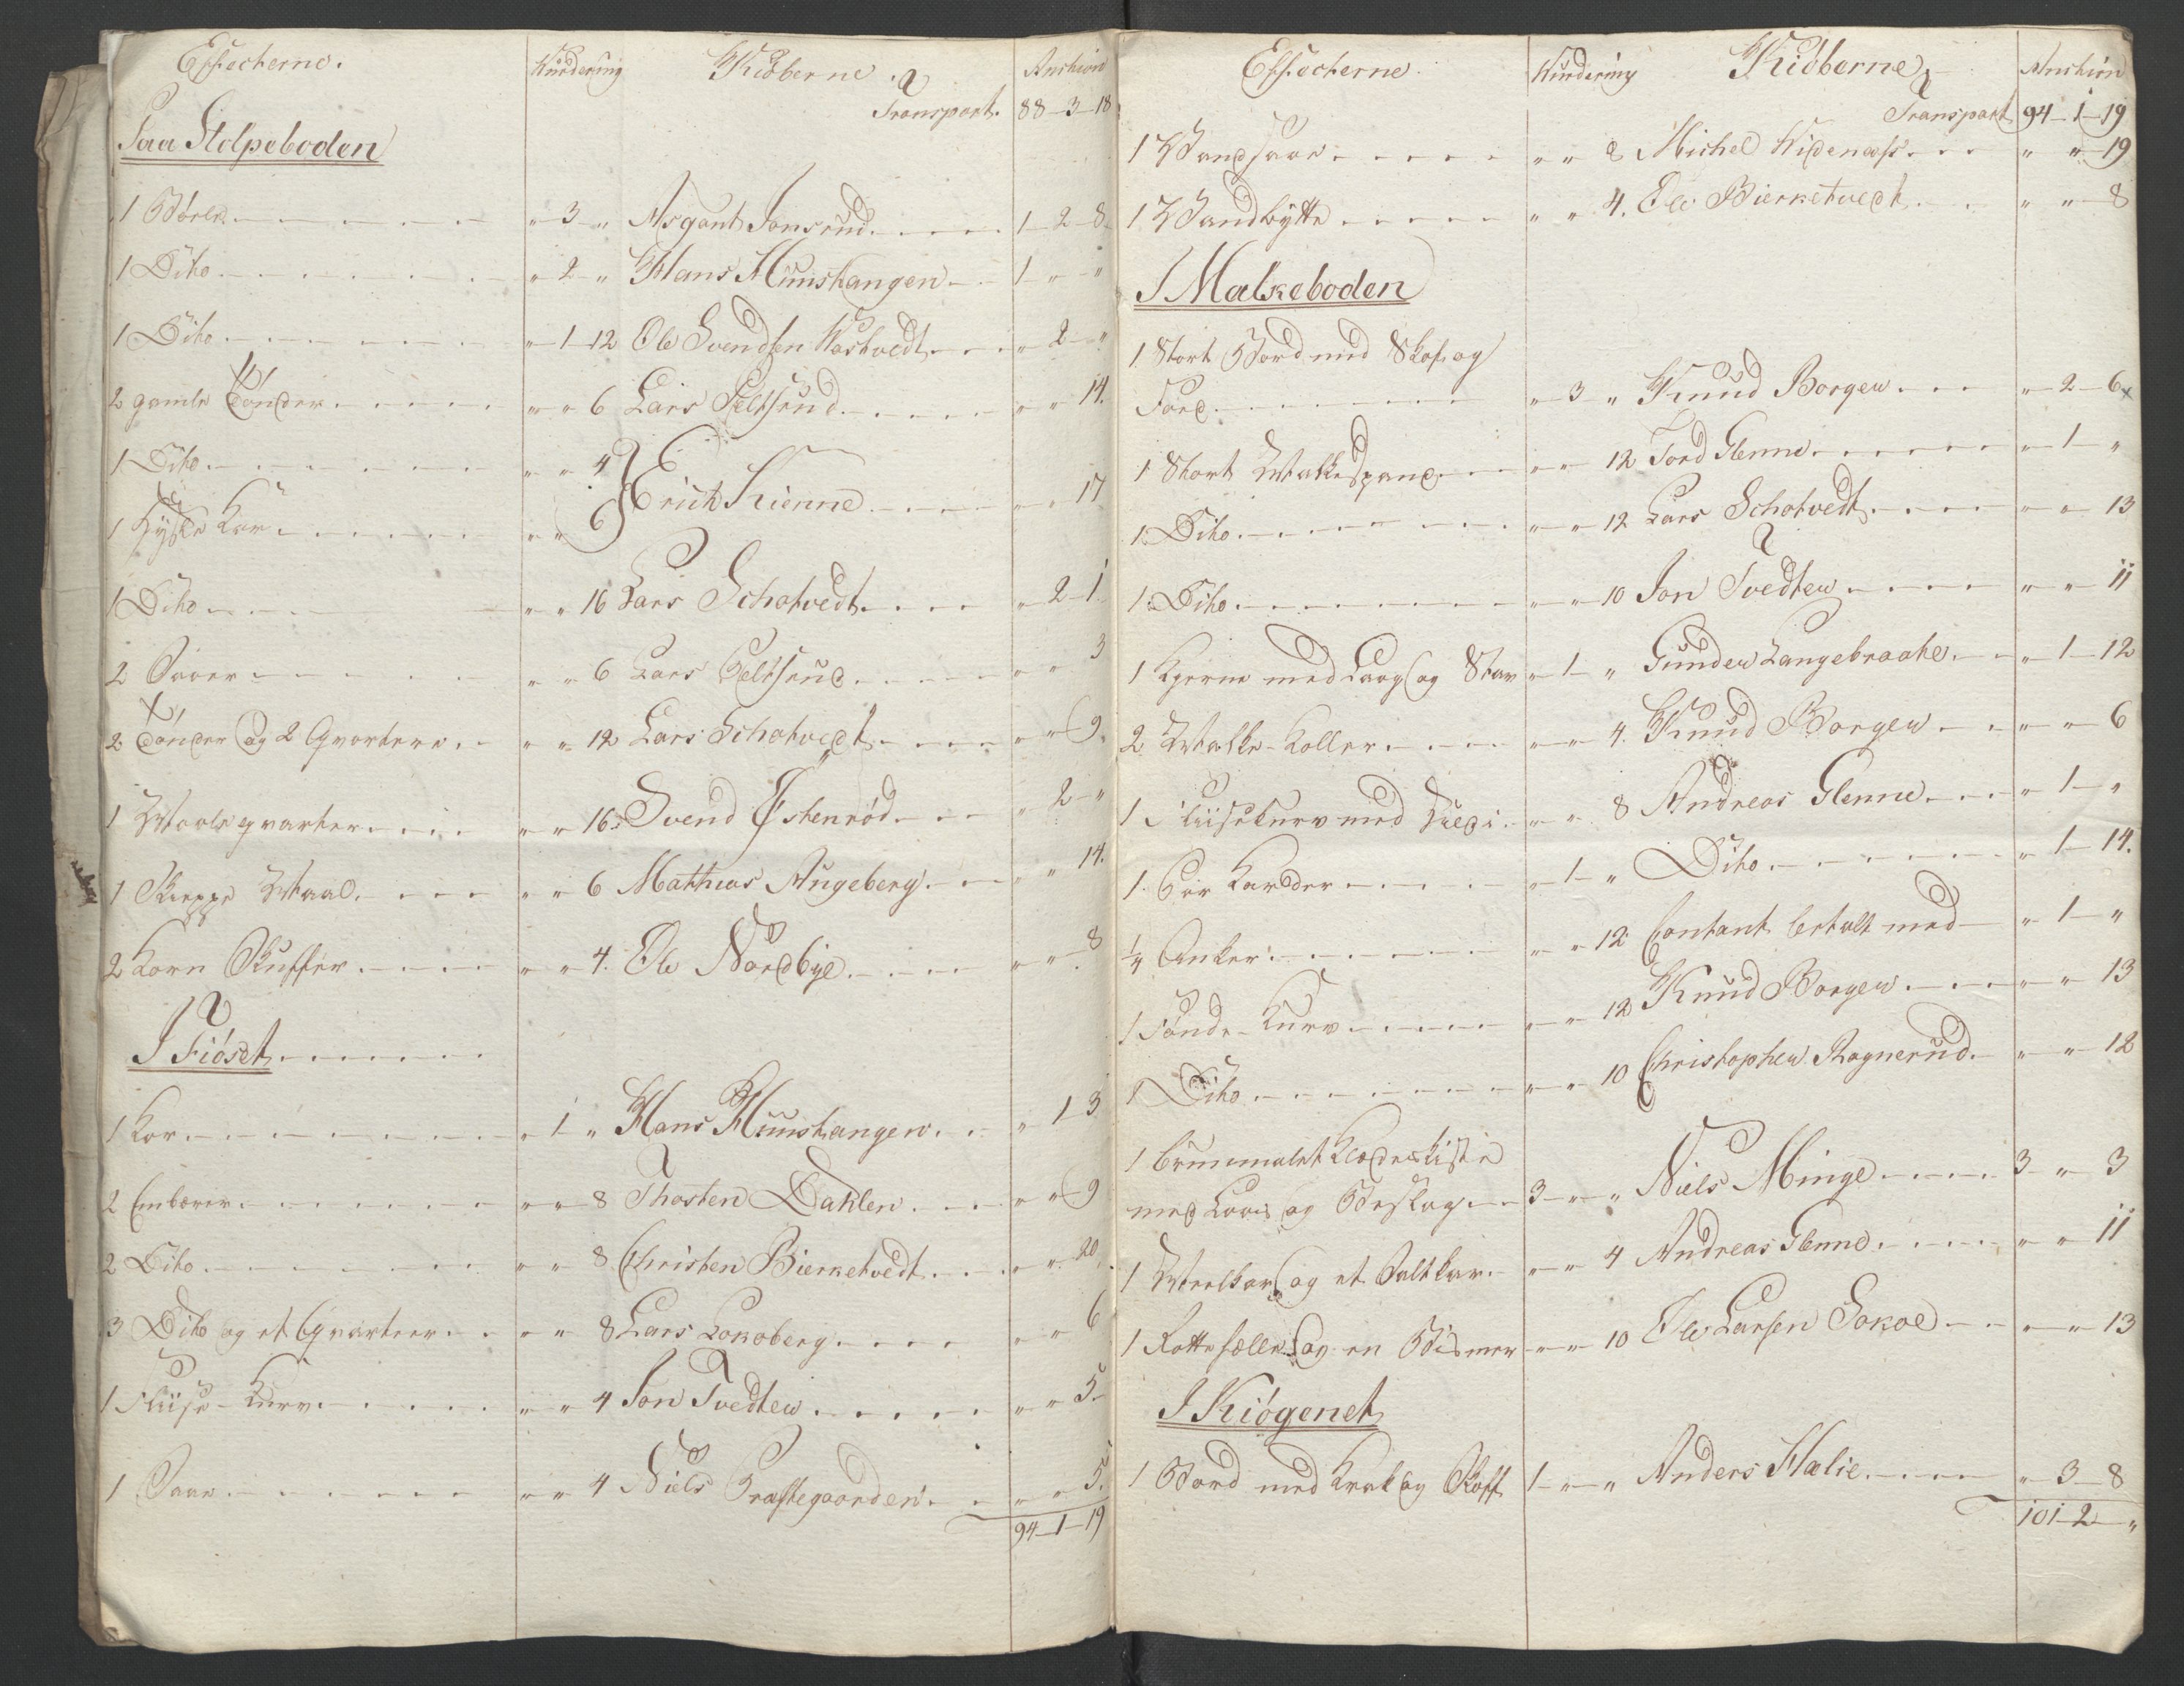 Effecterne. Vurdering Kiøberne Auction
Transport. 88-3-18
Paa Stolpeboden
1 Børle - - - " 3 - " Asgaut Jonsrud - - - 1-2-8
1 Dito - - - " 2 " Hans Munstangen - - 1 - " - "
1 Dito - - - " 1-12 Ole Svendsen Wastvedt - - - " 2 - "
2 gamle Tønder - - - " " 6 Lars Peltsrud - - - " " 14.
1 Dito - - - " " 4
1 Fyske Kar - - - " " 6 Erich Kienne - - - " " 17
1 Dito - - - " " 16 Lars Schotvedt - - - " 2-1
2 Saaer - - - " " 6 Lars Peltsrud - - - " " 3
2 Tønder og 2 Qvartere - " " 12 Lars Schotvedt - - - " " 9.
1 Maaleqvarter - - - " " 16 Svend Østenrød - - - " 2 - "
1 Skieppe Maal - - - " " 6 Mathias Augeberg - - " " 14.
2 Korn Skuffer - - - " " 4. Ole Nordbye - - - " " 8
I Fiøset - - -
1 Kar - - - " 1 " Hans Munstangen - - " 1-3
2 Embærer - - - " " 8 Thosten Dahlen - - - " " 9
2 Dito - - - " " 8 Christen Bierketvedt - - - " " 20
3 Dito og et Qvarteer - - " " 8 Lars Lokoberg - - - " " 6
1 Fliise-Kurv - - - " " 4 Jon Tvedten - - - " " 5.
1 Saae - - - " " 4 Niels Præstegaarden - - " " 5.
94-1-19
Effecterne. Vurdering Kiøberne Auction
Transport 94-1-19
1 Vandsaae - - - " " 8 Michel Widenæss - - - " " 19
1 Vandbøtte - - - " " 4. Ole Bierketvedt - - - " " 8
I Malkeboden
1 Stort Bord med Skof og
Foed - - - " 3 " Knud Borgen - - - " 2-6
1 Stort Malkespand - - " " 12 Tord Glenne - - - " 1 - "
1 Dito - - - " " 12 Lars Schotvedt - - - " " 13
1 Dito - - - " " 10 Jon Tvedten - - - " " 11
1 Kjerne med Laag og Stav " 1 " Gunder Langebraate - - " 1-12
2 Malke-Koller - - - " " 4. Knud Borgen - - " " 6
1 Fliisekurv med Huld i - " " 8 Andreas Glenne - - - " 1 - "
1 Par Karder - - - " 1 " Dito - - - " 1-14.
1/4 Anker - - - " " 12 Contant betalt med - " 1 - "
1 Haande-Kurv - - - " " 12 Knud Borgen - - - " " 13
1 Dito - - - " " 10 Christopher Ragnerud - " " 12
1 brunmalet Klædeskiste
med Laas og Beslag - - 3 - " Niels Minge - - - 3 " 3
1 Meelkar og et Saltkar - " " 4 Andreas Glenne - - - " " 11
1 Rottefælle og en Bismer " " 10 Ole Larsen Sokoe - - " " 13
I Kiøgenet
1 Bord med Krak og Skoff 1 - " Anders Halie - - - " 3-8
101-2-"